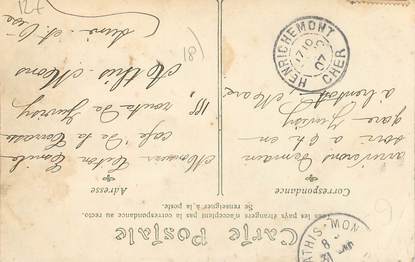 Carte Postale
Tous les pays étrangers n'acceptent pas la correspondance au recto.
Se renseigner à la poste.
Correspondance
Adresse
arriverons demain
soir à 9 h. en
gare Juvisy
à bientôt
Monsieur
café de la Terrasse
route de Juvisy
Athis-Mons
Seine et Oise
HENRICHEMONT
CHER
07
ATHIS-MON
127
181